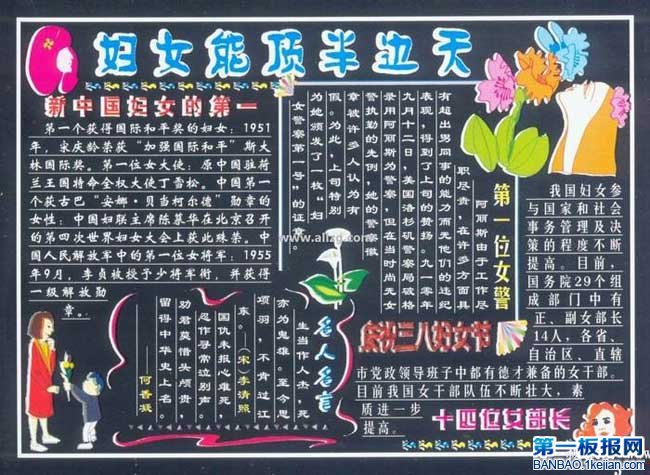 妇女能顶半边天
新中国妇女的第一
第一个获得国际和平奖的妇女：1951
年，宋庆龄荣获“加强国际和平”斯大
林国际奖。第一位女大使：原中国驻荷
兰王国特命全权大使丁雪松。中国第一
个获古巴“安娜·贝当柯尔德”勋章的
女性：中国妇联主席陈慕华在北京召开
的第四次世界妇女大会上获此殊荣。中
国人民解放军中的第一位女将军：1955
年9月，李贞被授予少将军衔，并获得
一级解放勋
章。
第一位女警
阿丽斯由于工作尽
职尽责，在许多方面具
有超出男同事的能力而天他们的违纪
表现，得到了上司的赞扬。九一零年
九月十二日，美国洛杉矶警察局破格
录用阿丽斯为警察，但在当时尚无女
警执勤的先例，她的警察徽
章被许多人认为有
假。为此，上司特别
为她颁发了一枚“妇
女警察第一号”的证章。
我国妇女参
与国家和社会
事务管理及决
策的程度不断
提高。目前，
国务院29个组
成部门中有
正、副女部长
14人，各省、
自治区、直辖
市党政领导班子中都有德才兼备的女干部。
目前我国女干部队伍不断壮大，素
质进一步
提高。
十四位女部长
庆祝三八妇女节
名人名言
生当作人杰，死
亦为鬼雄。至今思
项羽，不肯过江
东。（宋）李清照
国仇未报心难死，
忍作寻常泣别声。
劝君莫惜头颅贵，
留得中华史上名。
——何香凝
第一板报网
BANBAO.1kejian.com